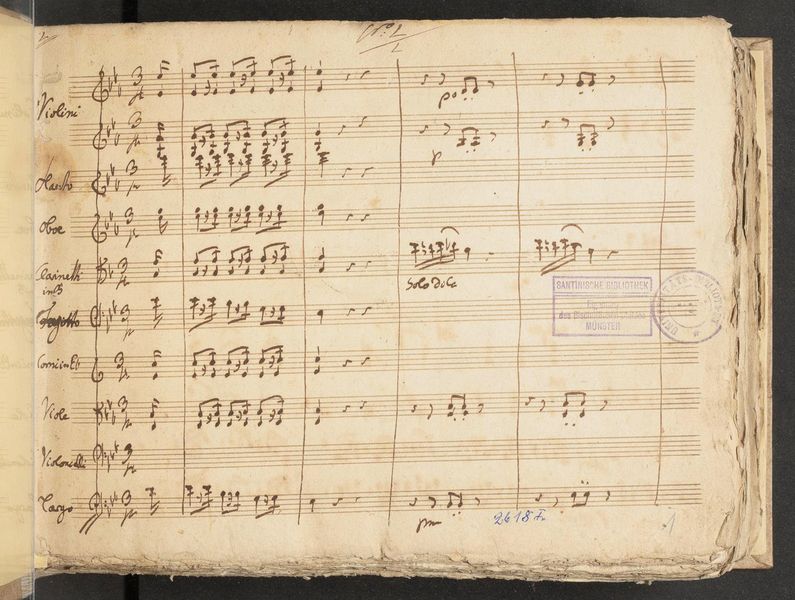 No: 1
Violini
po
p
Flauto
Oboe
Clarinetti
in B
Solo Dolce
Fagotto
Corni in E
Viole
Violoncelli
Largo
SANTINISCHE BIBLIOTHEK
Eigentum
des Bischöflichen Stuhles
MÜNSTER
2618
1